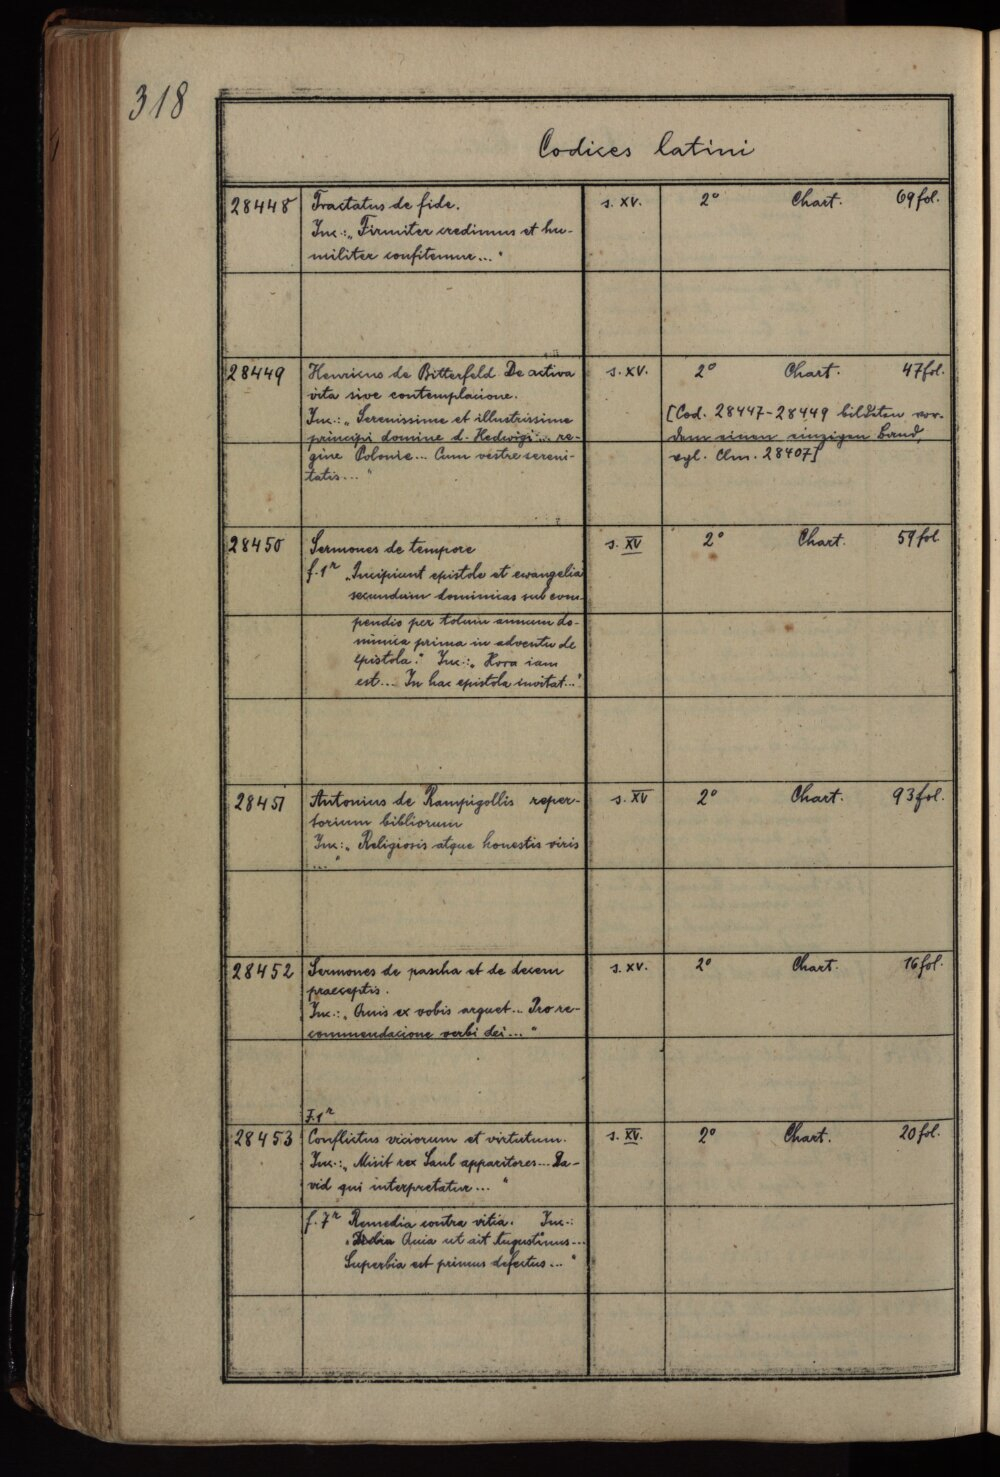 318
Codices latini
28448 Tractatus de fide. s. XV. 2° Chart. 69 fol.
Inc.: „Firmiter credimus et hu-
militer confitemur..."
28449 Henricus de Bitterfeld De activa s. XV. 2° Chart. 47 fol.
vita sive contemplacione.
Inc.: „Serenissime et illustrissime [Cod. 28447-28449 bildeten vor-
principi domine d. Hedwigi... re- dem einen einzigen Band,
gine Polonie... Cum vestre sereni- vgl. Clm. 28407]
tatis..."
28450 Sermones de tempore s. XV 2° Chart. 59 fol
f. 1r „Incipiunt epistole et ewangelia
secundum dominicas sub com-
pendio per totum annum do-
minica prima in adventu de
epistola." Inc.: „Hora iam
est... In hac epistola invitat..."
28451 Antonius de Rampigollis reper- s. XV 2° Chart. 93 fol.
torium bibliorum
Inc.: „Religiosis atque honestis viris
..."
28452 Sermones de pascha et de decem s. XV. 2° Chart. 16 fol.
praeceptis.
Inc.: „Quis ex vobis arguet... Pro re-
commendacione verbi dei..."
F. 1r
28453 Conflictus viciorum et virtutum. s. XV. 2° Chart. 20 fol.
Inc.: „Misit rex Saul apparitores... Da-
vid qui interpretatur..."
f. 7r Remedia contra vitia. Inc.:
„Quia ut ait Augustinus...
Superbia est primus defectus..."